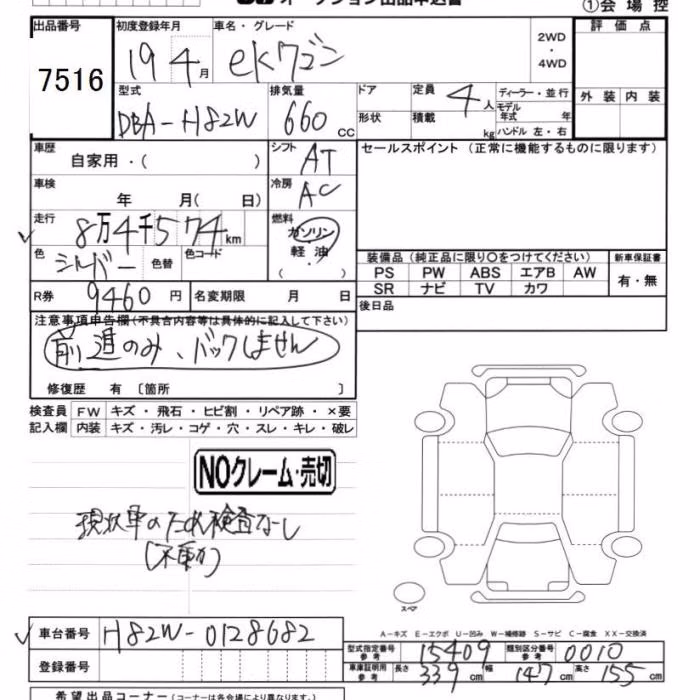 ①会場控
出品番号 初度登録年月 車名・グレード 評価点
7516 19 4月 ekワゴン 2WD・4WD
型式 排気量 ドア 定員 ディーラー・並行 外装 内装
DBA-H82W 660cc 4人 モデル年式 年
形状 積載 kg ハンドル 左・右
車歴 自家用・( ) シフト AT セールスポイント(正常に機能するものに限ります)
車検 年 月( 日) 冷房 AC
走行 8万4千574km 燃料 ガソリン・軽油 ( )
色 シルバー 色替 色コード
装備品(純正品に限り○をつけてください) 新車保証書
PS PW ABS エアB AW 有・無
SR ナビ TV カワ
R券 9460円 名変期限 月 日 後日品
注意事項申告欄(不具合内容等は具体的に記入して下さい)
前進のみ、バックしません
修復歴 有〔箇所 〕
検査員 FW キズ・飛石・ヒビ割・リペア跡・×要
記入欄 内装 キズ・汚レ・コゲ・穴・スレ・キレ・破レ
NOクレーム・売切
現状車のため検査なし
(不動)
スペア
A-キズ E-エクボ U-凹み W-補修跡 S-サビ C-腐食 XX-交換済
車台番号 H82W-0128682
型式指定番号 参考 15409 類別区分番号 参考 0010
登録番号 車庫証明用 参考 長さ 339cm 幅 147cm 高さ 155cm
希望出品コーナー(コーナーは各会場により異なります)